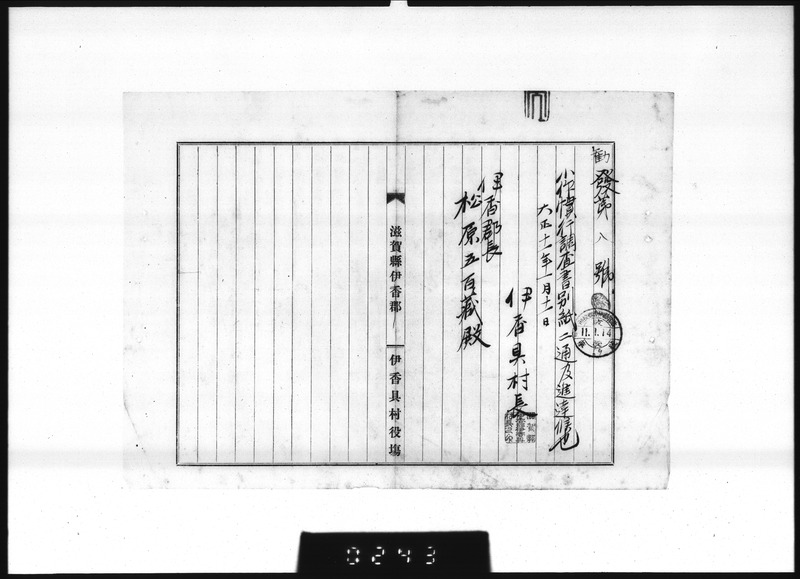 勸發第八號
小作慣行調査書別紙二通及進達候也
大正十一年一月十一日
伊香具村長
伊香郡長
松原五百藏殿
滋賀縣伊香郡
伊香具村役塲
11.1.14
0243